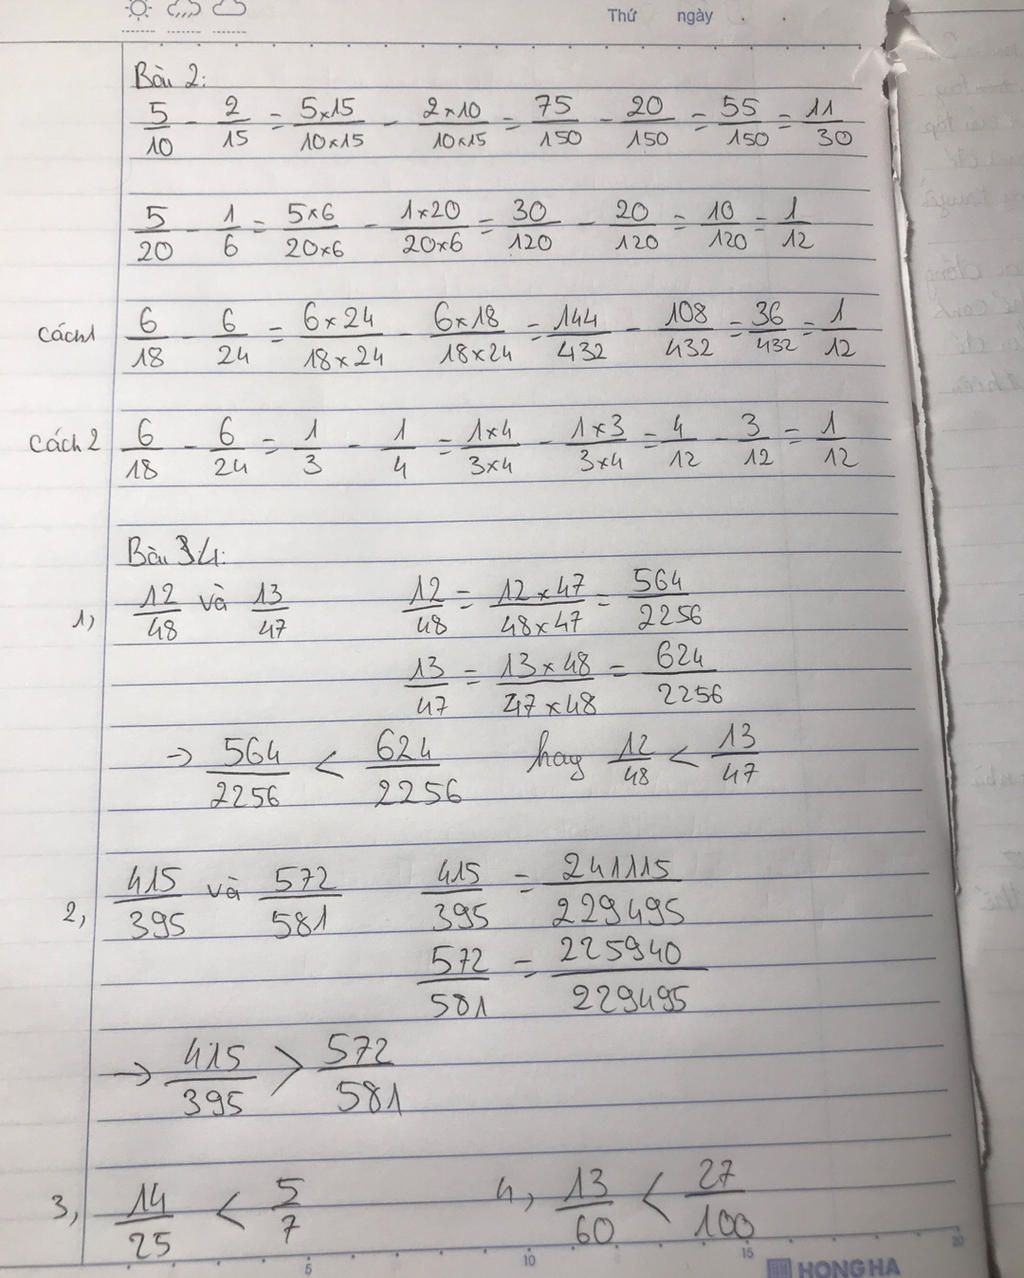 Thứ ngày . .
Bài 2:
5/10 - 2/15 = 5×15/10×15 - 2×10/10×15 = 75/150 - 20/150 = 55/150 = 11/30
5/20 - 1/6 = 5×6/20×6 - 1×20/20×6 = 30/120 - 20/120 = 10/120 = 1/12
Cách 1 6/18 - 6/24 = 6×24/18×24 - 6×18/18×24 = 144/432 - 108/432 = 36/432 = 1/12
Cách 2 6/18 - 6/24 = 1/3 - 1/4 = 1×4/3×4 - 1×3/3×4 = 4/12 - 3/12 = 1/12
Bài 4:
1, 12/48 và 13/47 12/48 = 12×47/48×47 = 564/2256
13/47 = 13×48/47×48 = 624/2256
→ 564/2256 < 624/2256 hay 12/48 < 13/47
2, 415/395 và 572/581 415/395 = 241115/229495
572/581 = 225940/229495
→ 415/395 > 572/581
3, 14/25 < 5/7 4, 13/60 < 27/100
5 10 15 20
HONG HA